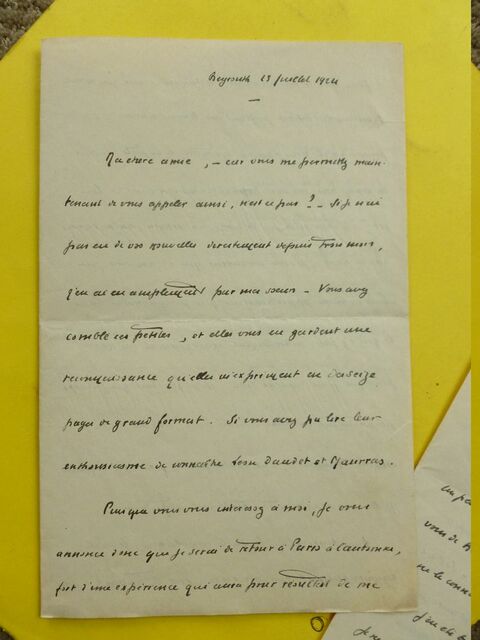 Beyrouth 13 Juillet 1924
Ma chère amie, — car vous me permettez main-
tenant de vous appeler ainsi, n'est ce pas ? — Si je n'ai
pas eu de vos nouvelles directement depuis trois mois,
j'en ai eu amplement par ma soeur — Vous avez
comblé ces petites, et elles vous en gardent une
reconnaissance qu'elles m'expriment en
pages de grand format. Si vous aviez pu lire leur
enthousiasme de connaître Léon Daudet et Maurras.
Puisque vous vous intéressez à moi, je vous
annonce donc que je serai de retour à Paris à l'automne,
fort d'une expérience qui aura pour résultat de me
un pa
vous de
ne le conn